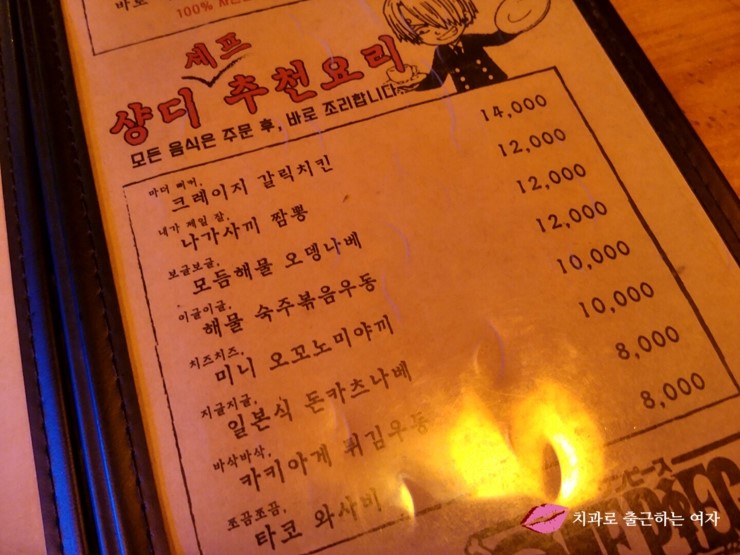 바로
100%
셰프
샹디 추천요리
모든 음식은 주문 후, 바로 조리합니다.
크레이지 갈릭치킨 14,000
내가 제일 잘,
나가사끼 짬뽕 12,000
보글보글,
모듬해물 오뎅나베 12,000
이글이글,
해물 숙주볶음우동 12,000
치즈치즈,
미니 오꼬노미야끼 10,000
지글지글,
일본식 돈카츠나베 10,000
바삭바삭,
카키아게 튀김우동 8,000
쪼끔쪼끔,
타코 와사비 8,000
ンピース
치과로 출근하는 여자